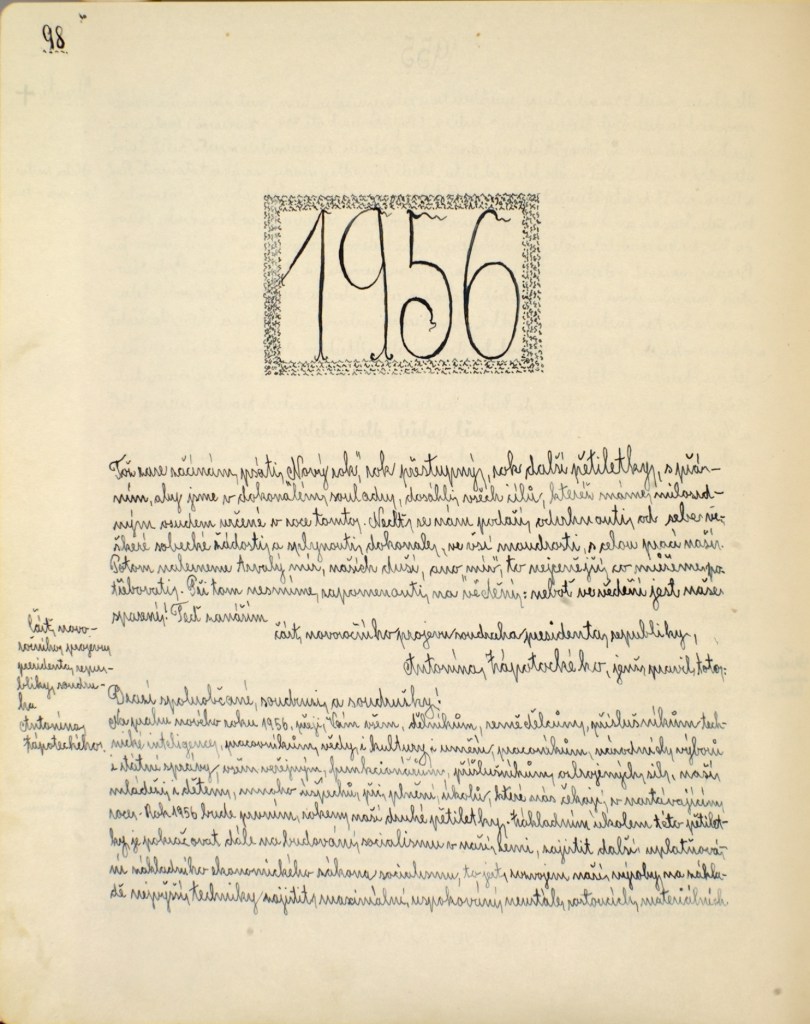 98
1956
Tož zase začínám psáti „Nový rok", rok přestupný, rok další pětiletky, s přá-
ním, aby jsme v dokonalém souladu, dosáhli všech cílů, kteréž máme
ným osudem určené v roce tomto. Nechť se nám podaří odvrhnouti od sebe ve-
škeré sobecké žádosti a splynouti dokonale, ve vší moudrosti, s celou prací naší.
Potom nalezneme trvalý mír, našich duší, ano mír", to nejcennější co můžeme po-
třebovati. Při tom nesmíme zapomenouti na "vědění": neboť ve vědění jest naše
spasení! Teď zanáším
část novoročního projevu soudruha presidenta republiky,
Antonína Zápotockého, jenž pravil toto:
Část novo-
ročního projevu
presidenta repu-
bliky soudru-
ha
Antonína
Zápotockého.
Drazí spoluobčané, soudruzi a soudružky!
Na prahu nového roku 1956, přeji Vám všem, dělníkům, zemědělcům, příslušníkům tech-
nické inteligence, pracovníkům vědy i kultury i umění, pracovníkům národních výborů
i státní správy, všem veřejným funkcionářům, příslušníkům ozbrojených sil, naší
mládeži i dětem, mnoho úspěchů při plnění úkolů, které nás čekají v nastávajícím
roce. Rok 1956 bude prvním rokem naší druhé pětiletky. Základním úkolem této pětilet-
ky je pokračovat dále na budování socialismu v naší zemi, zajistit další uplatňová-
ní základního ekonomického zákona socialismu, to jest, rozvojem naší výroby na zákla-
dě nejvyšší techniky zajistit maximální uspokojování neustále rostoucích materiálních